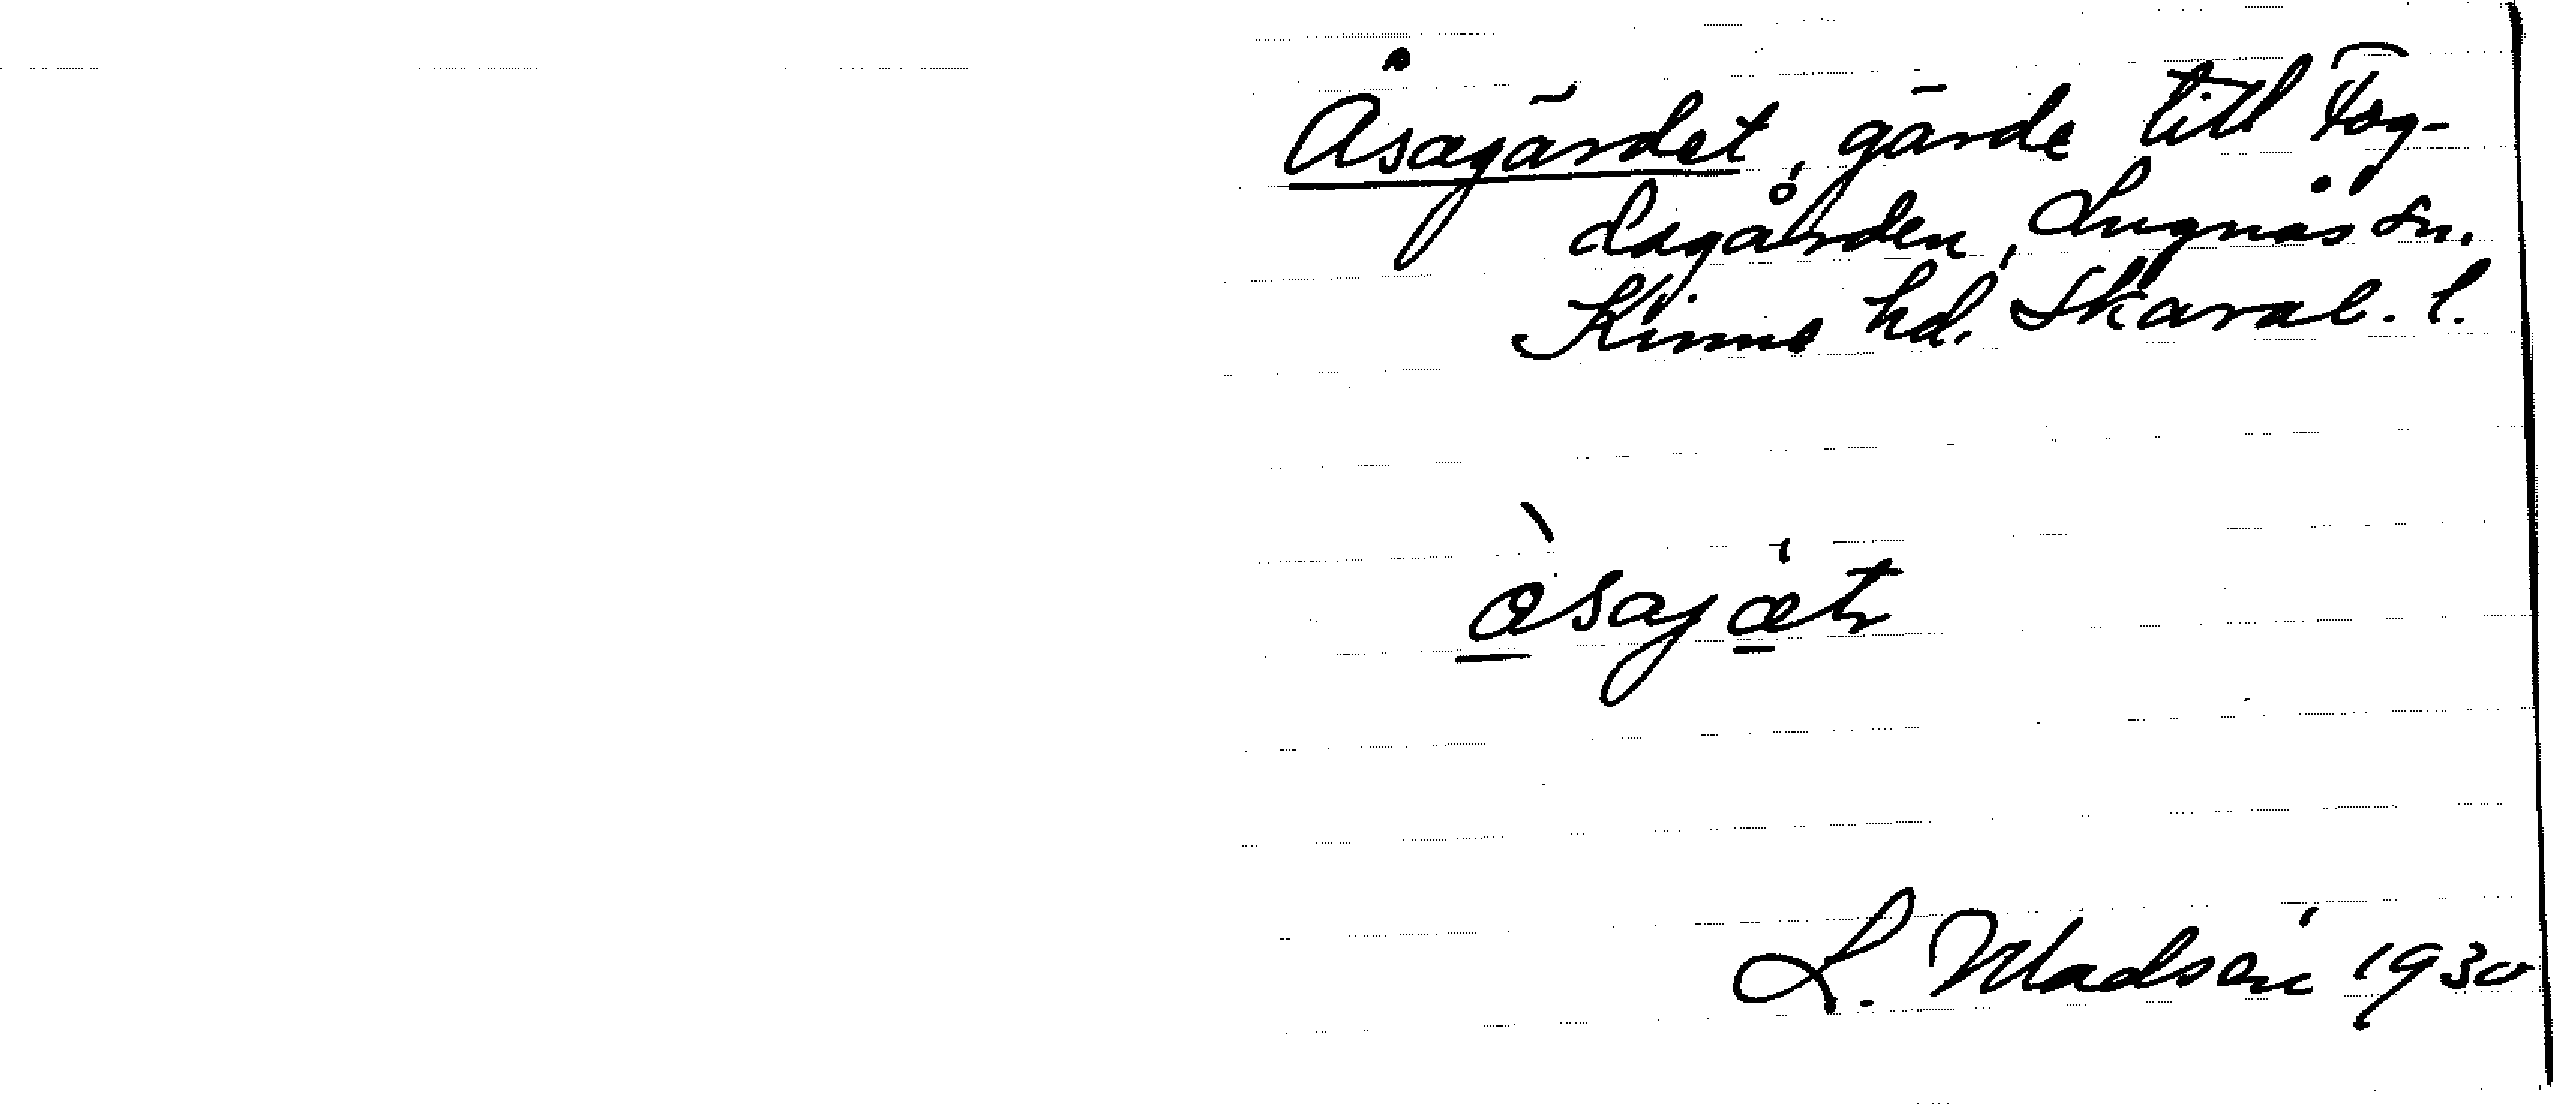 Åsagärdet, gärde till Fog-
dagården, Lugnås sn.
Kinne hd. Skarab. l.
åsajæ̀t
L. Madsén 1930